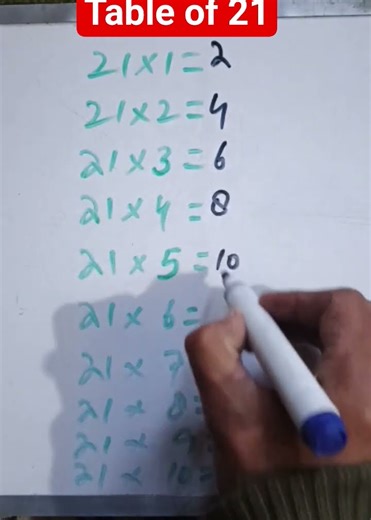 Table of 21
21×1=2
21×2=4
21×3=6
21×4=8
21×5=10
21×6=
21×7
21×8=
21×9=
21×10=